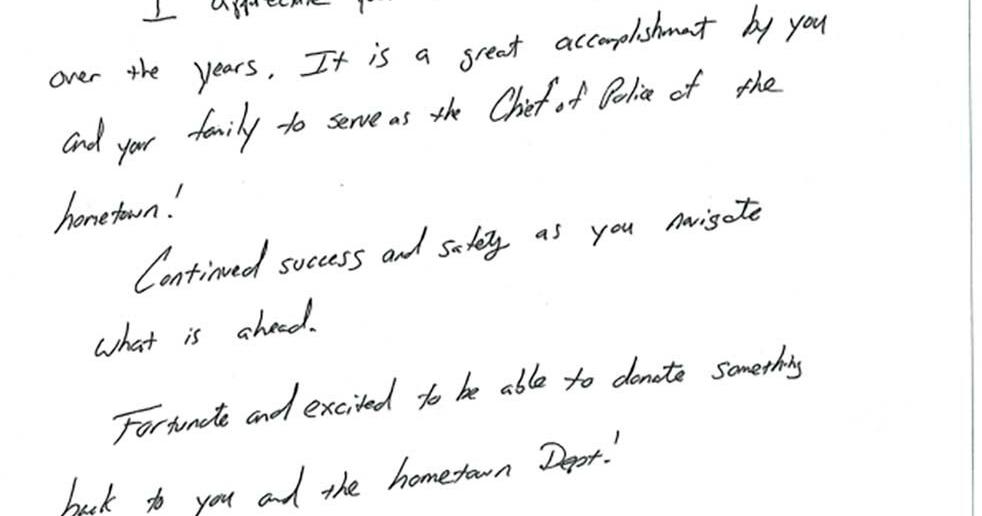 I appreciate
over the years. It is a great accomplishment by you
and your family to serve as the Chief of Police of the
hometown!
Continued success and safety as you navigate
what is ahead.
Fortunate and excited to be able to donate something
back to you and the hometown Dept.!